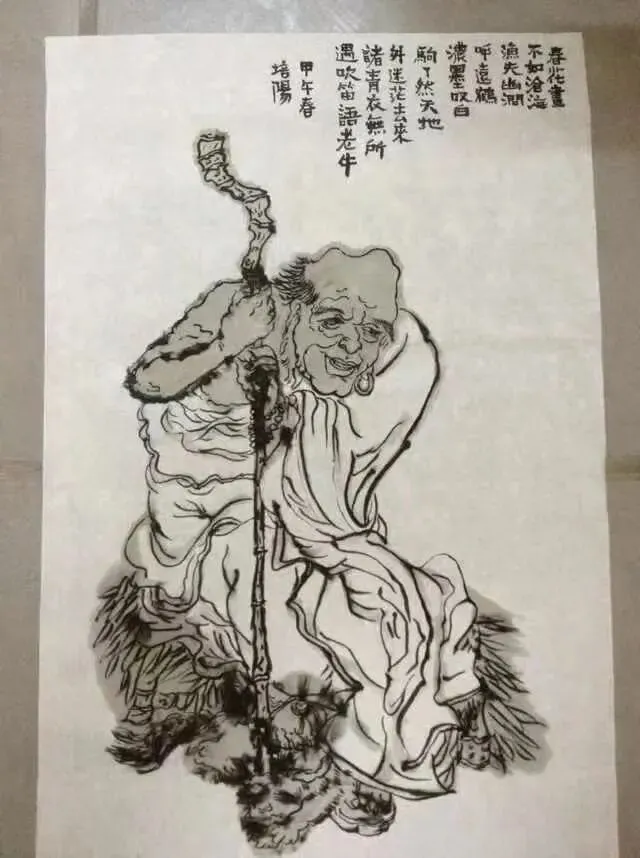 春花畫
不如滄海
漁夫幽澗
呼遠鶴
濃墨叹白
駒了然天地
舛迷茫去來
諸青衣無所
遇吹笛語老牛
甲午春
培陽